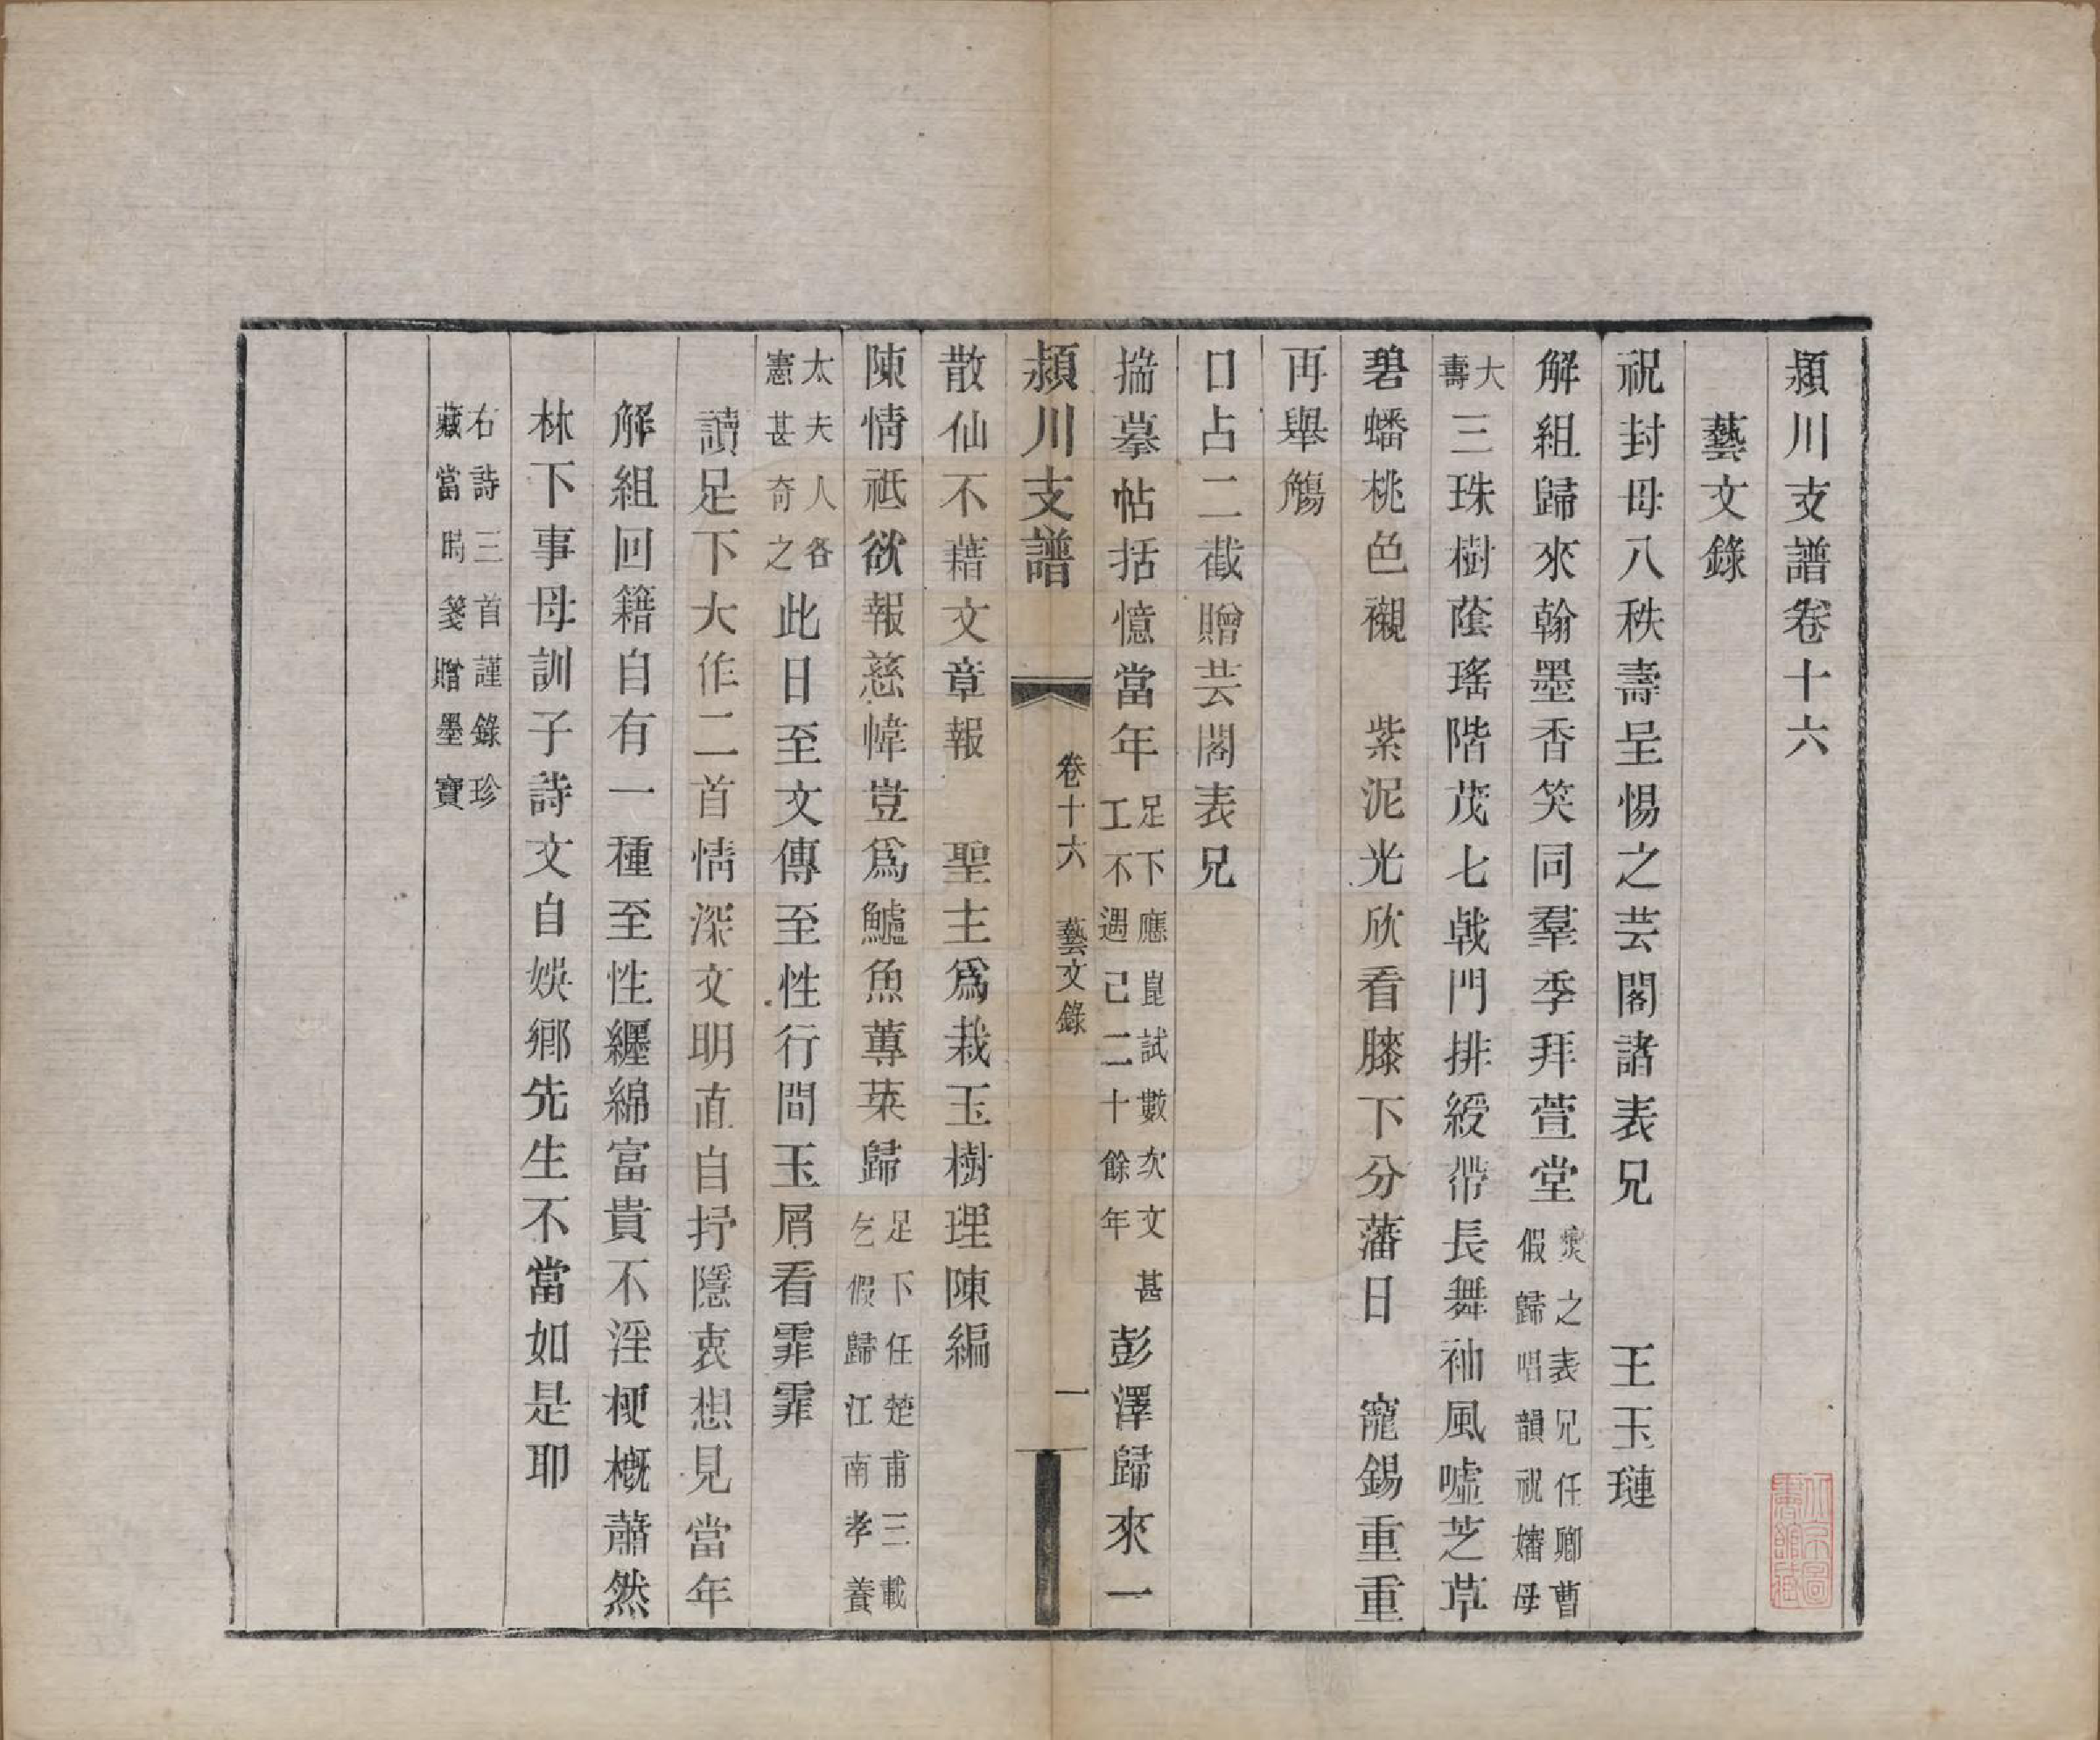 潁川支譜卷十六
藝文錄
祝封母八秩壽呈惕之芸閣諸表兄　王玉璉
解組歸來翰墨香笑同羣季拜萱堂燠之表兄任卿曹假歸唱韻祝嬸母
大壽三珠樹蔭瑤階茂七戟門排綬帶長舞袖風噓芝草
碧蟠桃色襯　紫泥光欣看膝下分藩日　寵錫重重
再舉觴
口占二截贈芸閣表兄
揣摹帖括憶當年足下應崑試數次文甚工不遇己二十餘年彭澤歸來一
潁川支譜　卷十六　藝文錄　一
散仙不藉文章報　聖主爲栽玉樹理陳編
陳情祗欲報慈幃豈爲鱸魚蓴菜歸足下任楚甫三載乞假歸江南孝養
太夫人各憲甚奇之此日至文傳至性行間玉屑看霏霏
讀足下大作二首情深文明直自抒隱衷想見當年
解組回籍自有一種至性纏綿富貴不淫梗概蕭然
林下事母訓子詩文自娛鄉先生不當如是耶
右詩三首謹錄珍藏當時箋贈墨寶